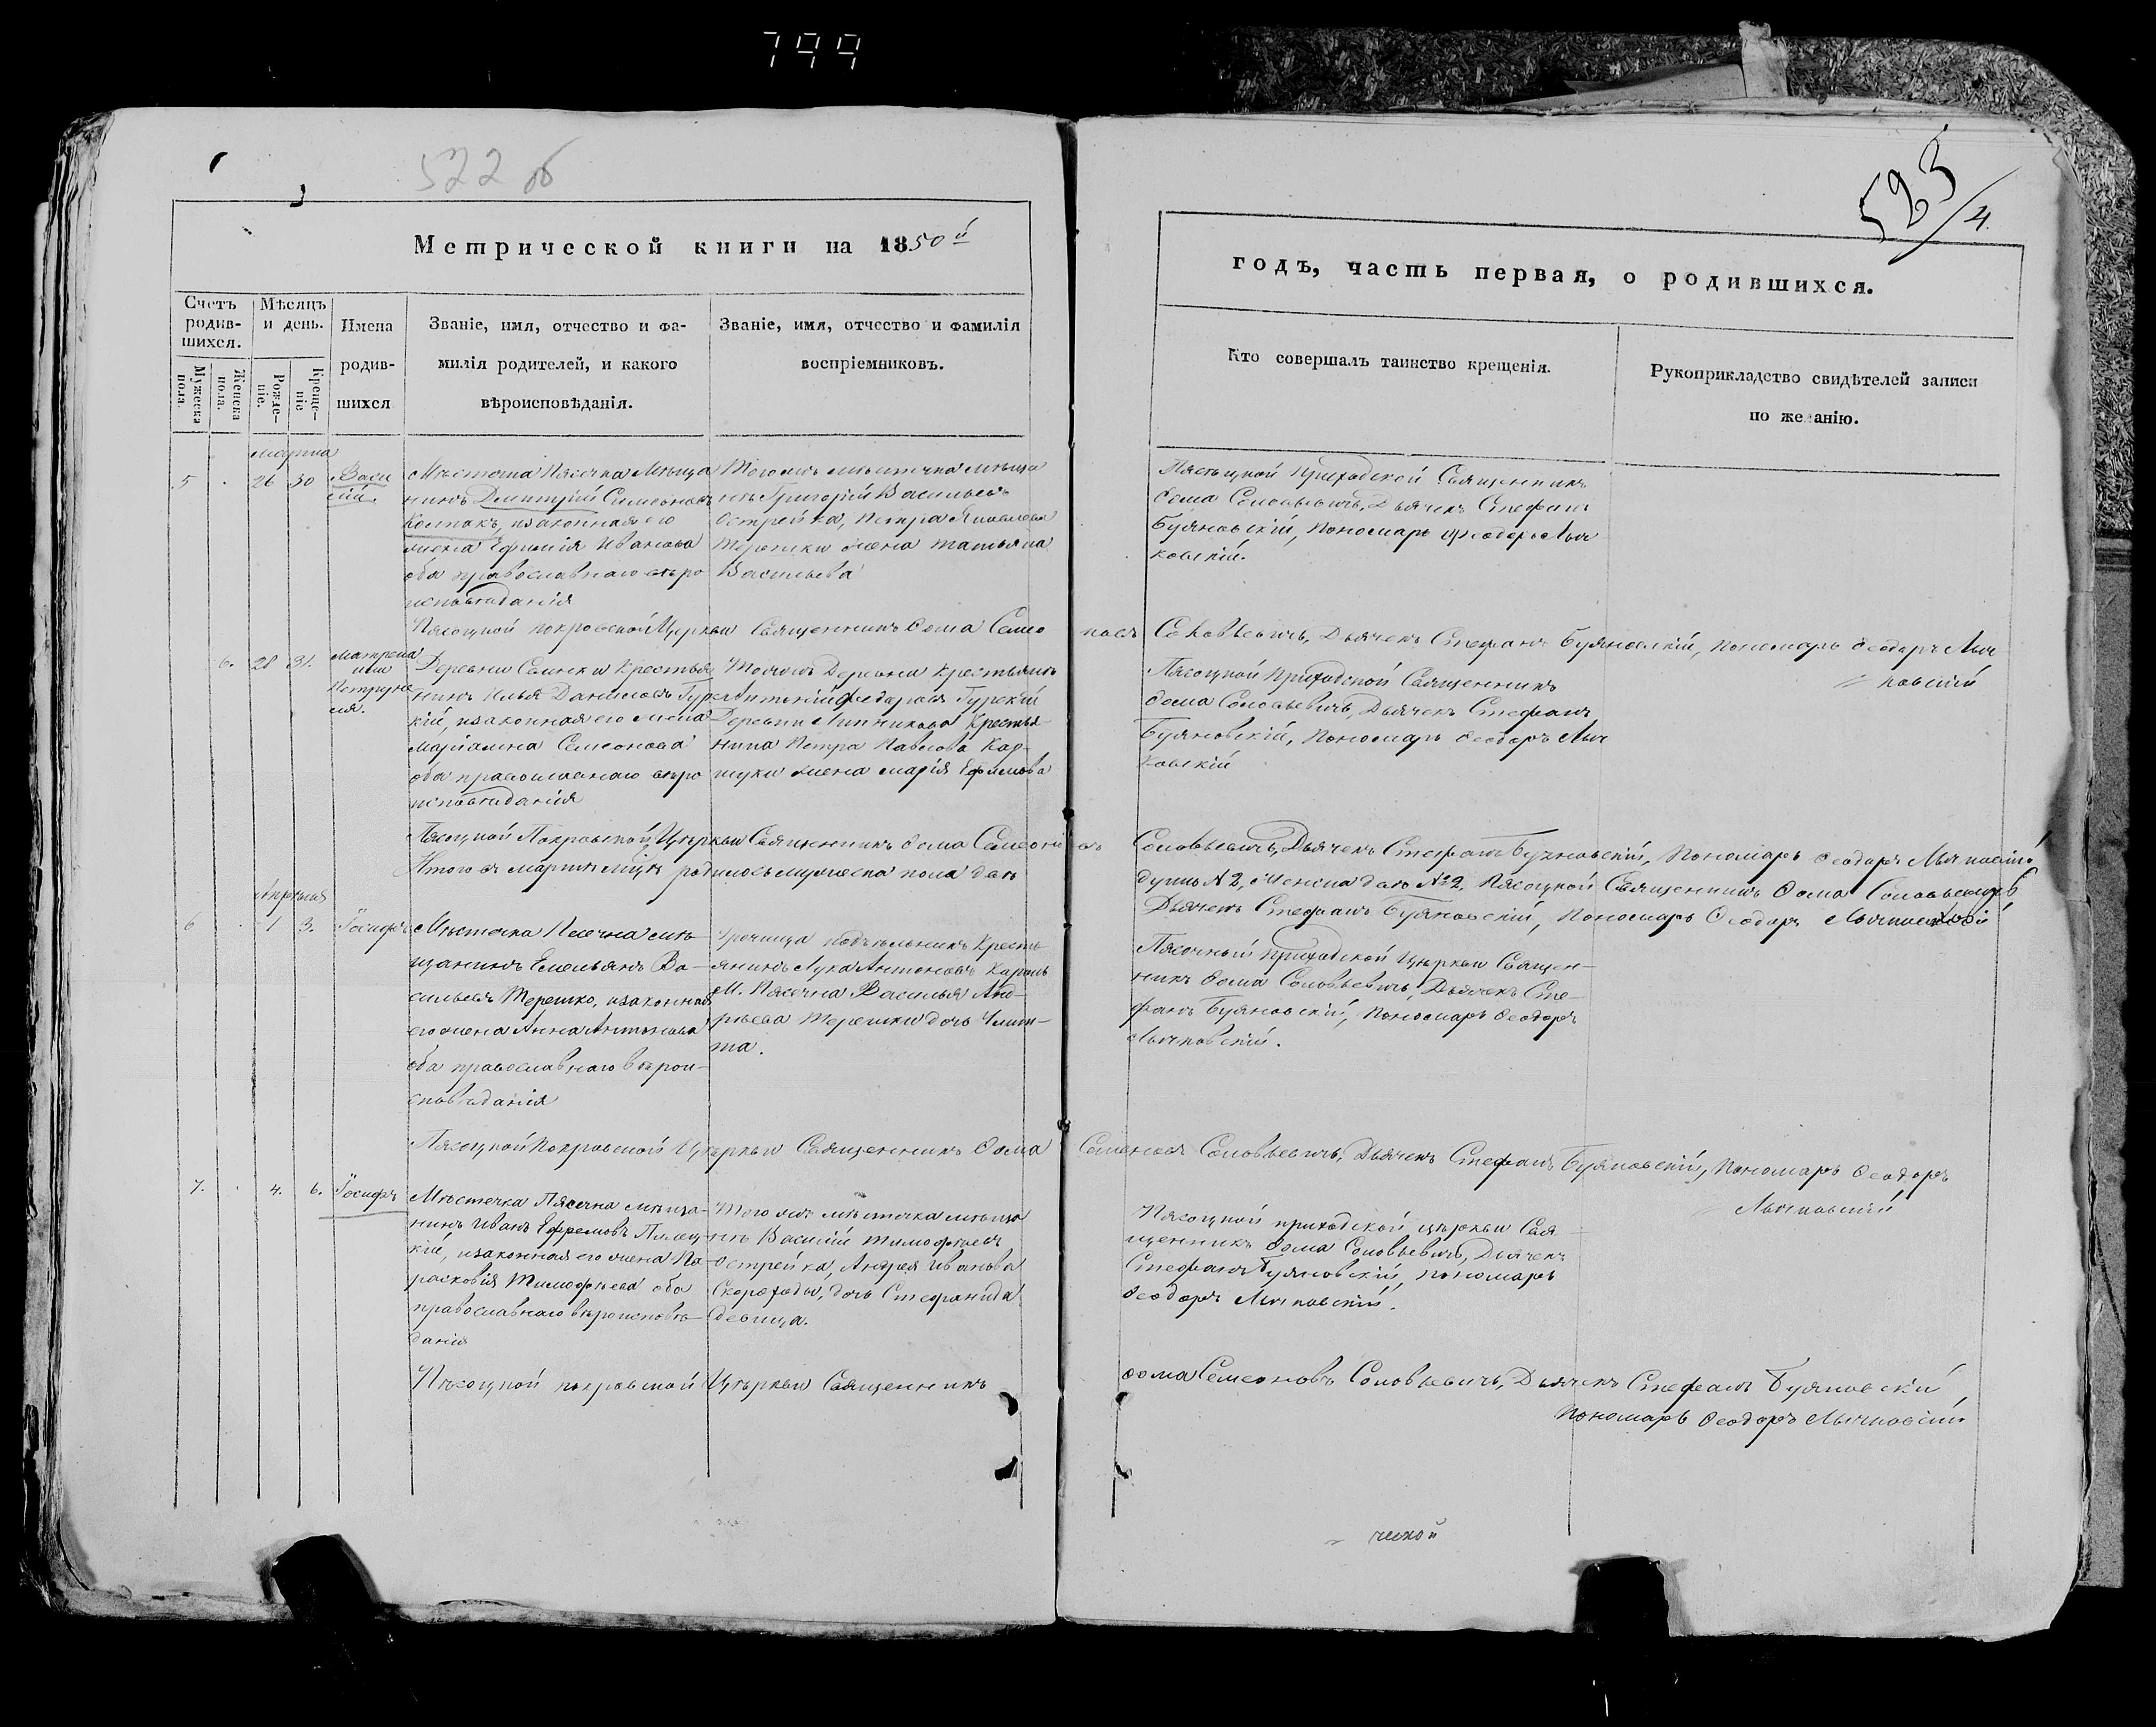 799
522 об
523/4.
Метрической книги на 1850й
годъ, часть первая, о родившихся.
Счетъ родив-шихся.
Мужеска пола.
Женска пола.
Мѣсяцъ и день.
Рожде-ніе.
Креще-ніе
Имена
родив-
шихся
Званіе, имя, отчество и фа-
милія родителей, и какого
вѣроисповѣданія.
Званіе, имя, отчество и фамилія
воспріемниковъ.
Кто совершалъ таинство крещенія.
Рукоприкладство свидѣтелей записи
по желанію.
марта
5 . 26 30 Васи
лій.
Мѣстечка Пясечна Мѣща
нинъ Дмитрій Симеоновъ
Колпакъ, изаконная его
жена Ефимія Иванова
оба православнаго вѣро
исповѣданія
Тогожъ мѣстечка мѣща
нъ Григорій Васильевъ
Острейка, Петра Яковлева
Терешки жена Татьяна
Васильева
Пясецкой Приходской Священникъ
Ѳома Соловьевичъ, Дьячекъ Стефанъ
Буяновскій, Пономарь Ѳеодоръ Лыч
ковскій.
Пясоцкой покровской Церкви Священникъ Ѳома Семео
новъ Соловьевичъ, Дьячекъ Стефанъ Буяновскій, Пономарь Ѳеодоръ Лыч
ковскій
6. 28 31. Матрена
или
Деревни Селинки Крестья
нинъ Илья Даниловъ Гур
кій, изаконная его жена
Маріанна Семеонова
оба православнаго вѣро
исповѣданія
Тойжъ Деревни Крестьянинъ
Антоній Федоровъ Гурскій
Деревни Липникова Крестья-
нина Петра Павлова Кар-
жена Марія Ефимова
Пясоцкой Приходской Священникъ
Ѳома Соловьевичъ, Дьячекъ Стефанъ
Буяновскій, Пономарь Ѳеодоръ Лыч
ковскій
Пясоцкой Покровской Церкви Священникъ Ѳома Семеоновъ
Соловьевичъ, Дьячекъ Стефанъ Буяновскій, Пономарь Ѳеодоръ Лычковскій
Итого въ мартѣ мцѣ родилось мужеска пола
душъ № 2, Женска № 2, Пясоцкой Священникъ Ѳома Соловьевичъ
Дьячекъ Стефанъ Буяновскій, Пономарь Ѳеодоръ Лычковскій
Апрѣля
6 . 1 3. Іосифъ
Мѣстечка Песечна мѣ
щанинъ Емельянъ Ва-
сильевъ Терешко, изаконная
его жена Анна Антонова
оба православнаго вѣрои-
сповѣданія
Урочища Крестья
янинъ Лука Антоновъ Кароль
М. Пясечна Василья Анд-
рѣева Терешки дочь
Пясочный Приходской Церкви Священ-
никъ Ѳома Соловьевичъ, Дьячекъ Сте-
фанъ Буяновскій, Пономарь Ѳеодоръ
Лычковскій.
Пясоцкой Покровской Церкви Священникъ Ѳома
Семеновъ Соловьевичъ, Дьячекъ Стефанъ Буяновскій, Пономарь Ѳеодоръ
Лычковскій
7. . 4. 6. Іосифъ
Мѣстечка Пясечна мѣща-
нинъ Иванъ Ефремовъ Пилец-
кій, изаконная его жена Па-
расковія Тимофѣева оба
православнаго вѣроисповѣ-
данія
Тогожъ мѣстечка мѣща
нъ Василій Тимофѣевъ
Острейка, Андрея Иванова
Скороходы, дочь Стефанида
девица.
Пясоцкой приходской церкви Свя
щенникъ Ѳома Соловьевичъ, Дьячекъ
Стефанъ Буяновскій, пономарь
Ѳеодоръ Лычковскій.
Пясоцкой покровской Церкви Священникъ
Ѳома Семеоновъ Соловьевичъ, Дьячекъ Стефанъ Буяновскій,
Пономарь Ѳеодоръ Лычковскій
ческой